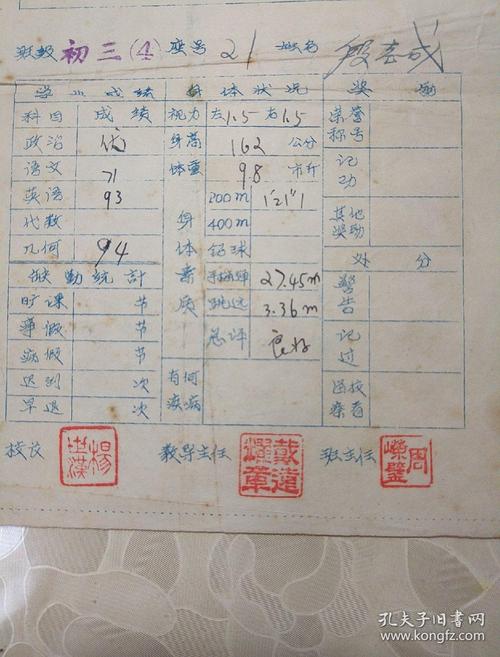 班级 初三(4) 座号 21 姓名 段志成
学业成绩 身体状况 奖励
科目 成绩 视力 左1.5 右1.5 荣誉称号
政治 优 身高 162 公分
语文 71 体重 98 市斤 记功
英语 93 200m 1'21"1
代数 400m 其他奖励
几何 94 铅球
缺勤统计 身体素质 手榴弹 27.45m 处分
旷课 节 跳远 3.36m 警告
事假 节 总评 良好
病假 节 记过
迟到 次 有何疾病
早退 次 留校察看
校长 杨世汉 教导主任 戴道耀章 班主任 周荣璧
孔夫子旧书网
www.kongfz.com